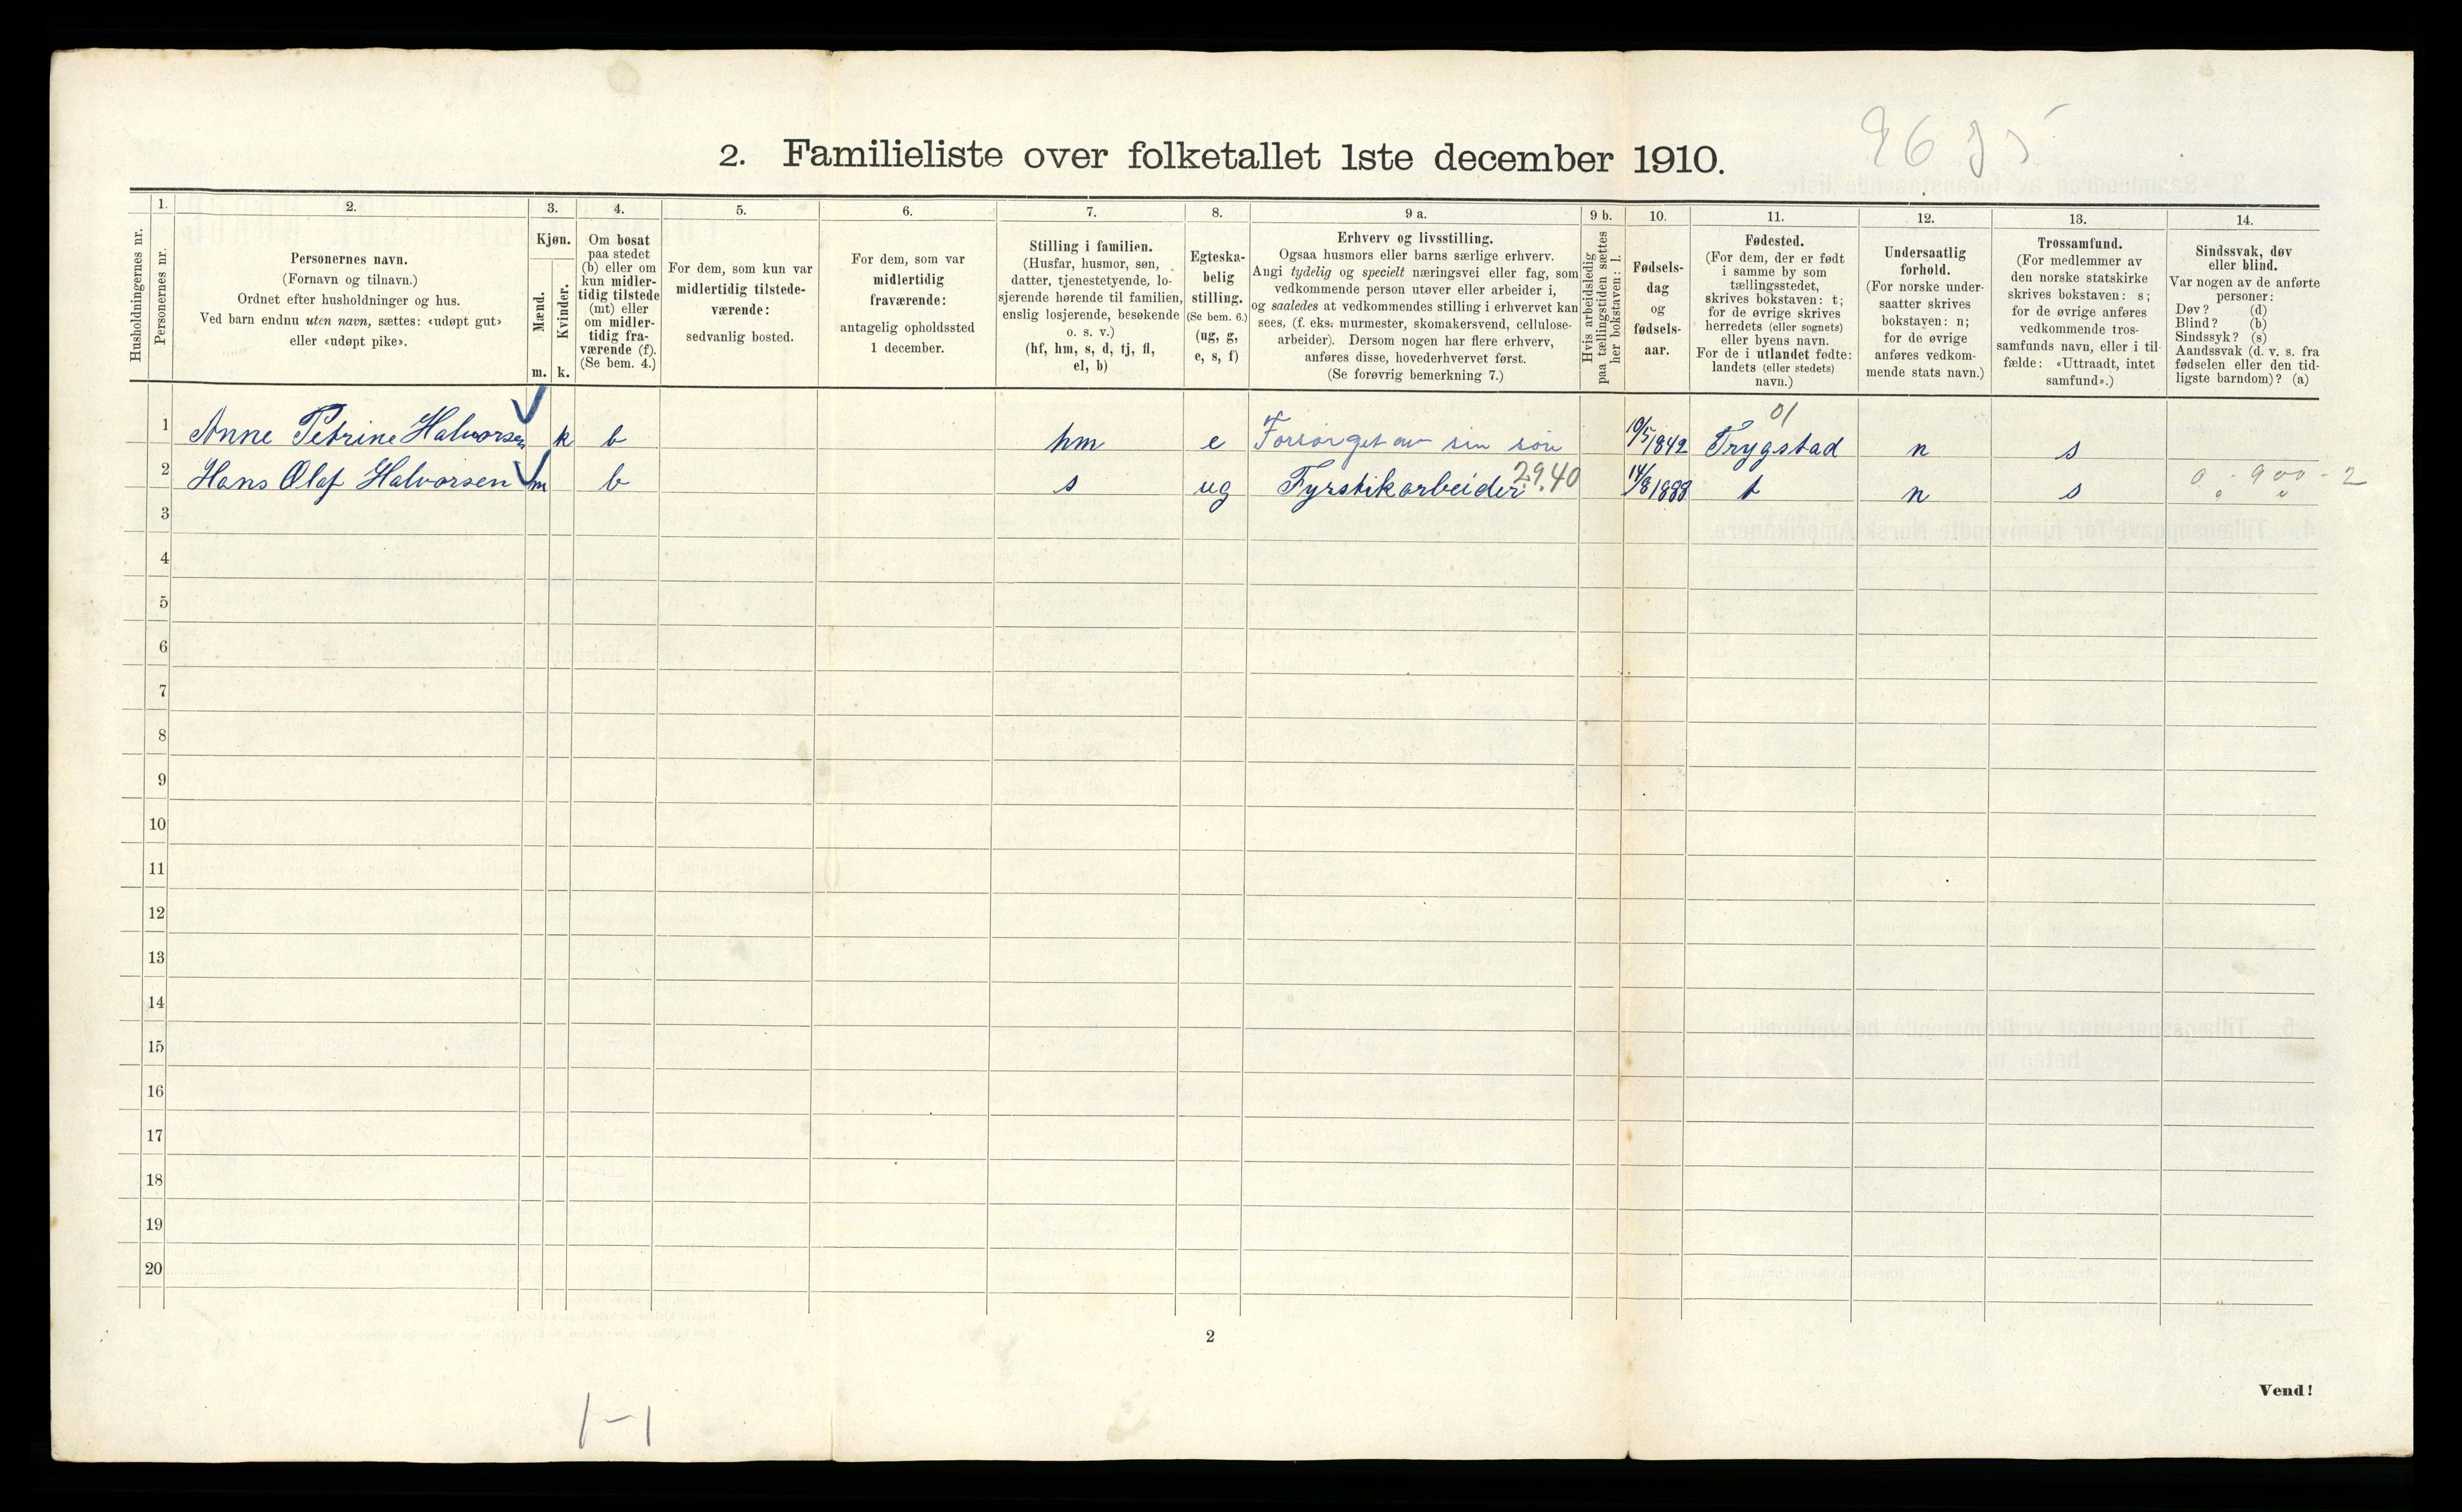 2. Familieliste over folketallet 1ste december 1910.
Husholdningernes nr.
1.
Personernes nr.
2.
Personernes navn.
(Fornavn og tilnavn.)
Ordnet efter husholdninger og hus.
Ved barn endnu uten navn, sættes: «udøpt gut»
eller «udøpt pike».
3.
Kjøn.
Mænd.
Kvinder.
m. k.
4.
Om bosat
paa stedet
(b) eller om
kun midler-
tidig tilstede
(mt) eller
om midler-
tidig fra-
værende (f).
(Se bem. 4.)
5.
For dem, som kun var
midlertidig tilstede-
værende:
sedvanlig bosted.
6.
For dem, som var
midlertidig
fraværende:
antagelig opholdssted
1 december.
7.
Stilling i familien.
(Husfar, husmor, søn,
datter, tjenestetyende, lo-
sjerende hørende til familien,
enslig losjerende, besøkende
o. s. v.)
(hf, hm, s, d, tj, fl,
el, b)
8.
Egteska-
belig
stilling.
(Se bem. 6.)
(ug, g,
e, s, f)
9 a.
Erhverv og livsstilling.
Ogsaa husmors eller barns særlige erhverv.
Angi tydelig og specielt næringsvei eller fag, som
vedkommende person utøver eller arbeider i,
og saaledes at vedkommendes stilling i erhvervet kan
sees, (f. eks. murmester, skomakersvend, cellulose-
arbeider). Dersom nogen har flere erhverv,
anføres disse, hovederhvervet først.
(Se forøvrig bemerkning 7.)
9 b.
Hvis arbeidsledig
paa tællingstiden sættes
her bokstaven: l.
10.
Fødsels-
dag
og
fødsels-
aar.
11.
Fødested.
(For dem, der er født
i samme by som
tællingsstedet,
skrives bokstaven: t;
for de øvrige skrives
herredets (eller sognets)
eller byens navn.
For de i utlandet fødte:
landets (eller stedets)
navn.)
12.
Undersaatlig
forhold.
(For norske under-
saatter skrives
bokstaven: n;
for de øvrige
anføres vedkom-
mende stats navn.)
13.
Trossamfund.
(For medlemmer av
den norske statskirke
skrives bokstaven: s;
for de øvrige anføres
vedkommende tros-
samfunds navn, eller i til-
fælde: «Uttraadt, intet
samfund».)
14.
Sindssvak, døv
eller blind.
Var nogen av de anførte
personer:
Døv? (d)
Blind? (b)
Sindssyk? (s)
Aandssvak (d. v. s. fra
fødselen eller den tid-
ligste barndom)? (a)
01
1 Anne Petrine Halvorsen k b hm e Forsørget av sin søn 10/5 1842 Trygstad n s
2 Hans Olaf Halvorsen m b s ug Fyrstikarbeider 29.40 14/8 1888 t n s 0 - 900 - 2
3
4
5
6
7
8
9
10
11
12
13
14
15
16
17
18
19
20
2
Vend!
1-1